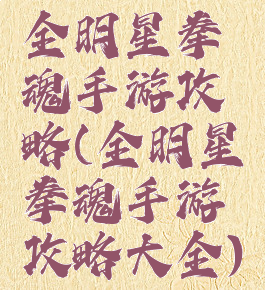 全明星拳
魂手游攻
略(全明星
拳魂手游
攻略大全)